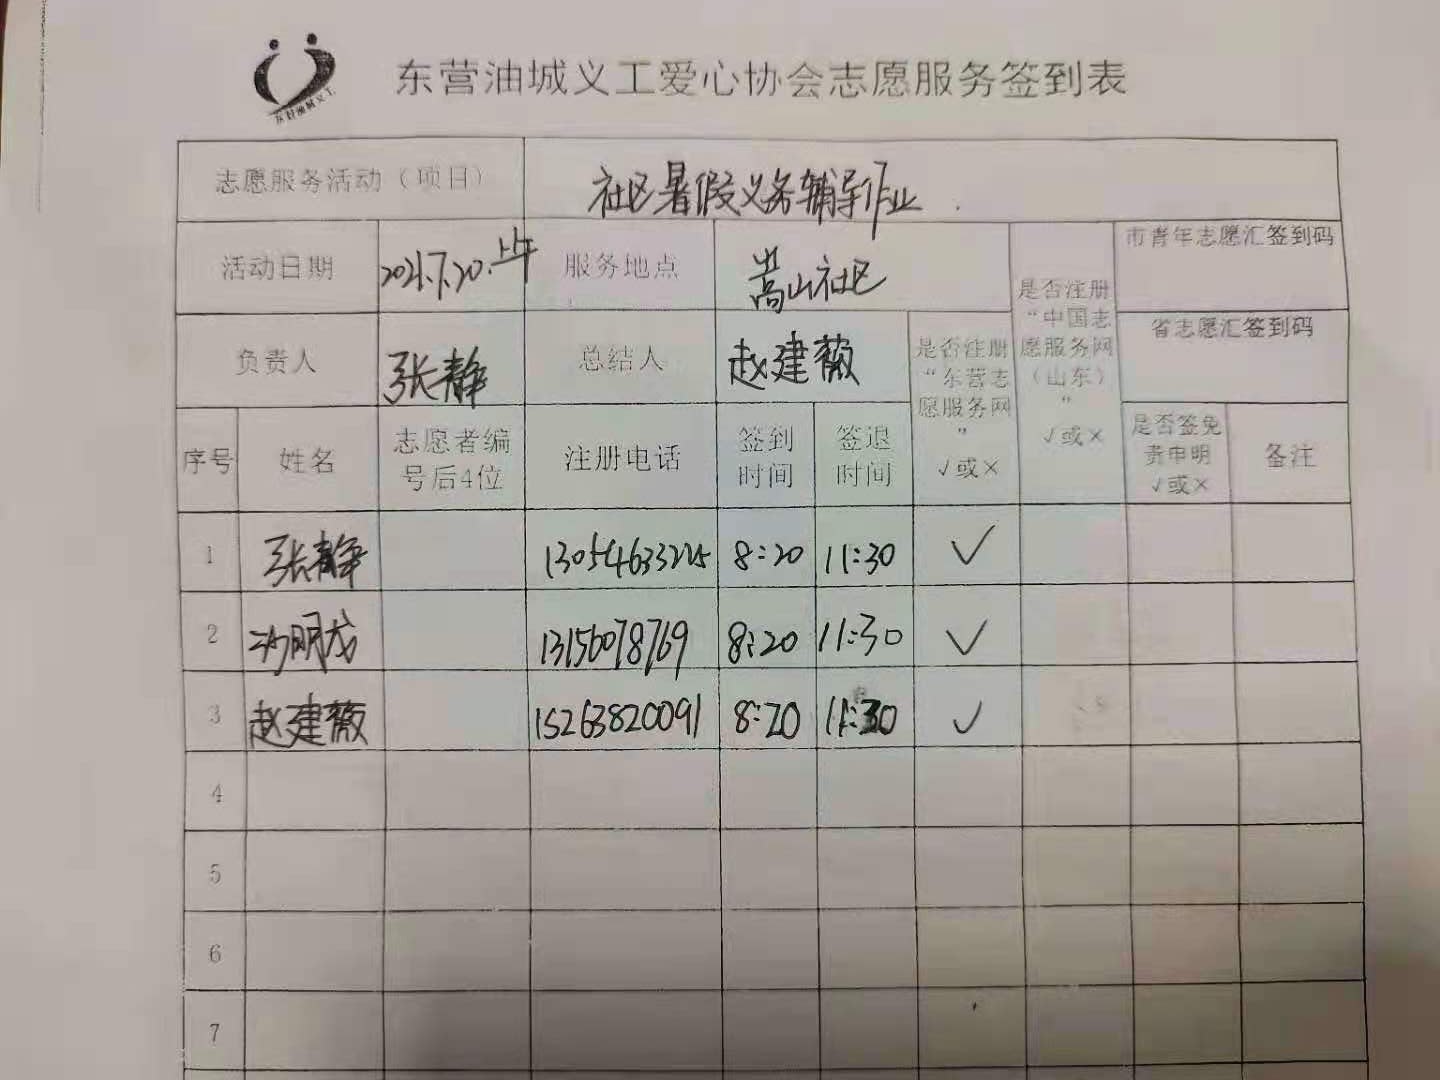 东营油城义工
东营油城义工爱心协会志愿服务签到表
志愿服务活动（项目） 社区暑假义务辅导作业
活动日期 2021.7.20.上午 服务地点 嵩山社区 是否注册“中国志愿服务网（山东）”√或× 市青年志愿汇签到码
负责人 张静 总结人 赵建薇 是否注册“东营志愿服务网”√或× 省志愿汇签到码
序号 姓名 志愿者编号后4位 注册电话 签到时间 签退时间 是否签免责申明√或× 备注
1 张静 13054633225 8:20 11:30 ✓
2 明龙 13156078769 8:20 11:30 ✓
3 赵建薇 15263820091 8:20 11:30 ✓
4
5
6
7